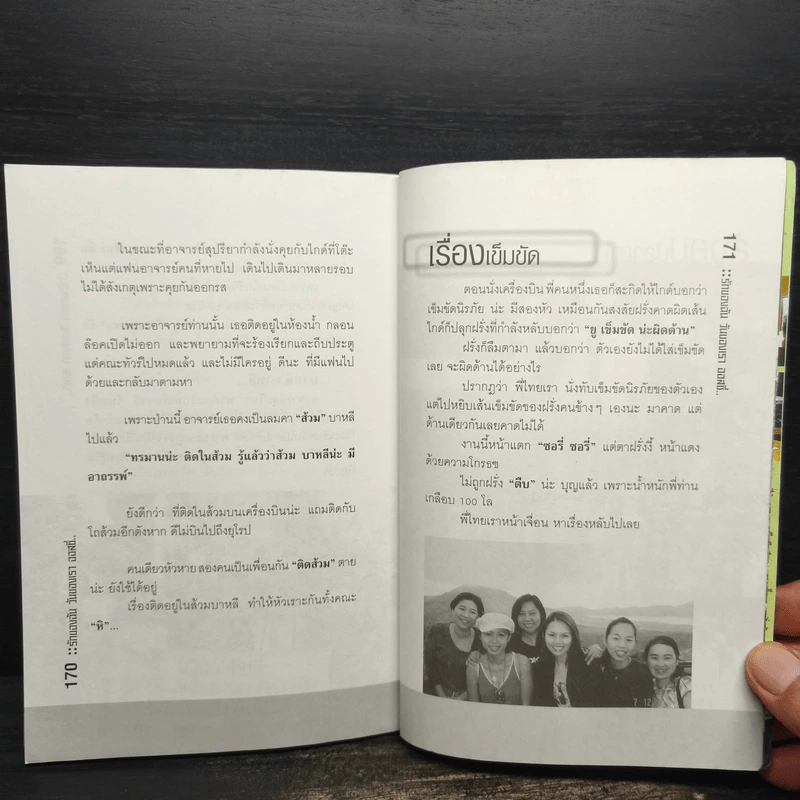 ในขณะที่อาจารย์สุปรียากำลังนั่งคุยกับไกด์ที่โต๊ะ
เห็นแต่แฟนอาจารย์คนที่หายไป เดินไปเดินมาหลายรอบ
ไม่ได้สังเกตุเพราะคุยกันออกรส
เพราะอาจารย์ท่านนั้น เธอติดอยู่ในห้องน้ำ กลอน
ล๊อคเปิดไม่ออก และพยายามที่จะร้องเรียกและถีบประตู
แต่คณะทัวร์ไปหมดแล้ว และไม่มีใครอยู่ ดีนะ ที่มีแฟนไป
ด้วยและกลับมาตามหา
เพราะป่านนี้ อาจารย์เธอคงเป็นลมคา "ส้วม" บาหลี
ไปแล้ว
"ทรมานน่ะ ติดในส้วม รู้แล้วว่าส้วม บาหลีน่ะ มี
อาถรรพ์"
ยังดีกว่า ที่ติดในส้วมบนเครื่องบินน่ะ แถมติดกับ
โถส้วมอีกตังหาก ดีไม่บินไปถึงยุโรป
คนเดียวหัวหาย สองคนเป็นเพื่อนกัน "ติดส้วม" ตาย
น่ะ ยังใช้ได้อยู่
เรื่องติดอยู่ในส้วมบาหลี ทำให้หัวเราะกันทั้งคณะ
"หิ"...
170 ::รักของฉัน วันของเรา ออสซี่..
เรื่องเข็มขัด
ตอนนั่งเครื่องบิน พี่คนหนึ่งเธอก็สะกิดให้ไกด์บอกว่า
เข็มขัดนิรภัย น่ะ มีสองหัว เหมือนกันสงสัยฝรั่งคาดผิดเส้น
ไกด์ก็ปลุกฝรั่งที่กำลังหลับบอกว่า "ยู เข็มขัด น่ะผิดด้าน"
ฝรั่งก็ลืมตามา แล้วบอกว่า ตัวเองยังไม่ได้ใส่เข็มขัด
เลย จะผิดด้านได้อย่างไร
ปรากฎว่า พี่ไทยเรา นั่งทับเข็มขัดนิรภัยของตัวเอง
แต่ไปหยิบเส้นเข็มขัดของฝรั่งคนข้างๆ เองนะ มาคาด แต่
ด้านเดียวกันเลยคาดไม่ได้
งานนี้หน้าแตก "ซอรี่ ซอรี่" แต่ตาฝรั่งงี้ หน้าแดง
ด้วยความโกรธฃ
ไม่ถูกฝรั่ง "ตืบ" น่ะ บุญแล้ว เพราะน้ำหนักพี่ท่าน
เกลือบ 100 โล
พี่ไทยเราหน้าเจื่อน หาเรื่องหลับไปเลย
171 ::รักของฉัน วันของเรา ออสซี่..
7 12